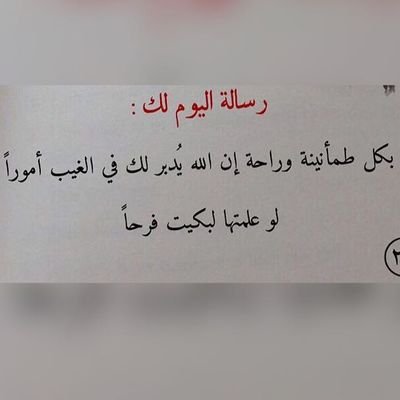 رسالة اليوم لك :
بكل طمأنينة وراحة إن الله يُدبر لك في الغيب أموراً
لو علمتها لبكيت فرحاً
٢